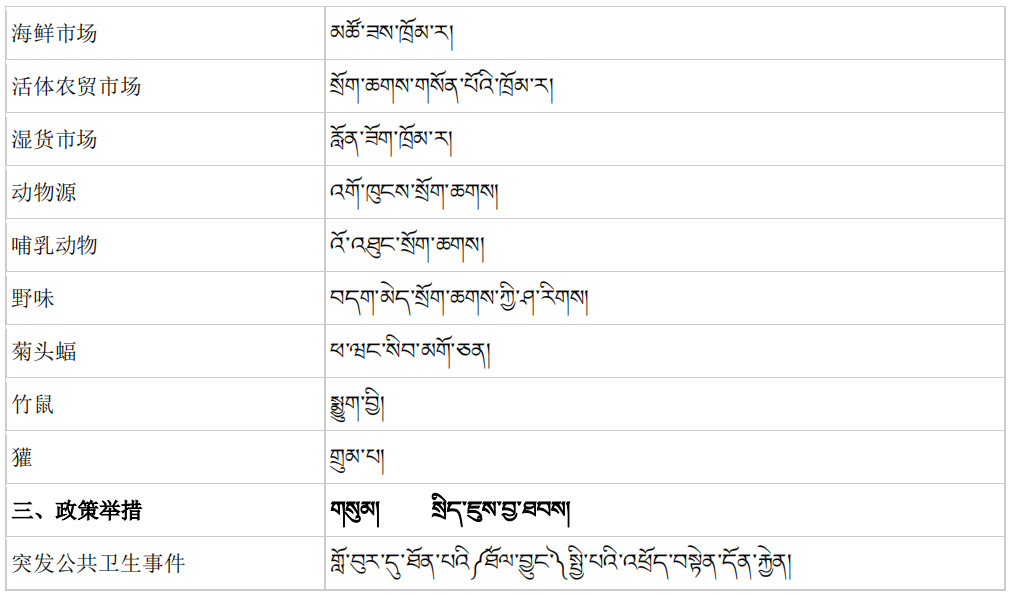 海鲜市场 མཚོ་ཟས་ཁྲོམ་ར།
活体农贸市场 སྲོག་ཆགས་གསོན་པོའི་ཁྲོམ་ར།
湿货市场 རློན་ཟོག་ཁྲོམ་ར།
动物源 འགོ་ཁུངས་སྲོག་ཆགས།
哺乳动物 འོ་འཐུང་སྲོག་ཆགས།
野味 བདག་མེད་སྲོག་ཆགས་ཀྱི་ཤ་རིགས།
菊头蝠 ཕ་ཝང་སིབ་མགོ་ཅན།
竹鼠 སྨྱུག་བྱི།
獾 གྲུམ་པ།
三、政策举措 གསུམ། སྲིད་ཇུས་བྱ་ཐབས།
突发公共卫生事件 གློ་བུར་དུ་ཐོན་པའི་༼ཐོལ་བྱུང་༽སྤྱི་པའི་འཕྲོད་བསྟེན་དོན་རྐྱེན།